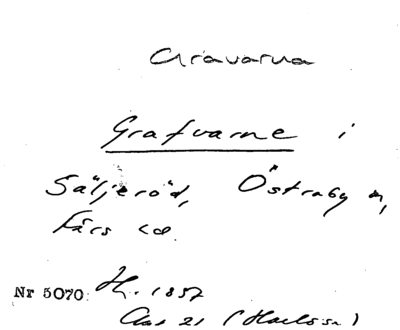 Gravarna
Grafvarne i
Säljeröd, Östraby sn,
Färs hd.
Nr 5070. H. 1857
21